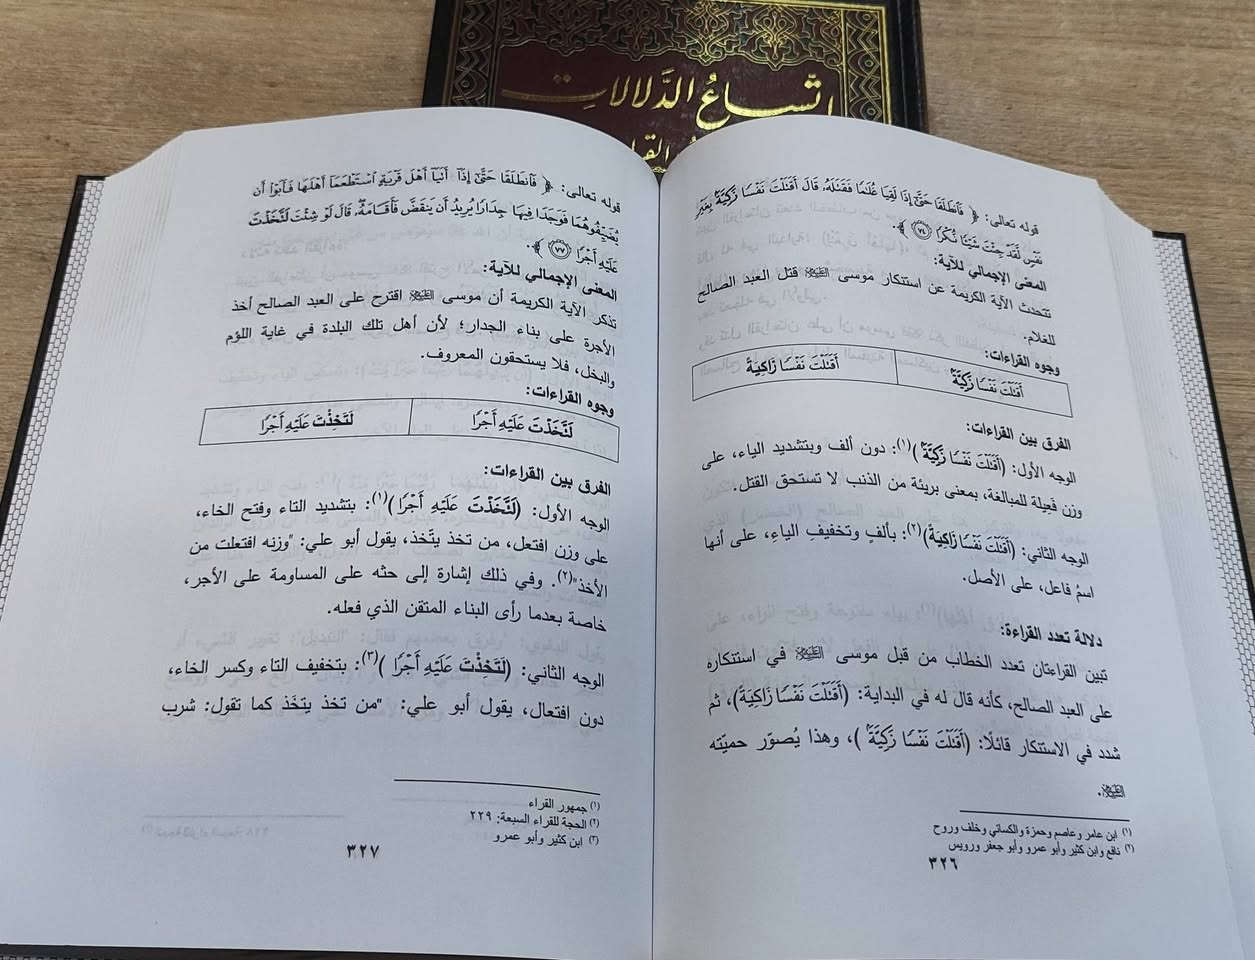 اتساع الدَّلالات
قوله تعالى: ﴿ فَٱنطَلَقَا حَتَّىٰٓ إِذَا لَقِيَا غُلَٰمٗا فَقَتَلَهُۥ قَالَ أَقَتَلۡتَ نَفۡسٗا زَكِيَّةَۢ بِغَيۡرِ
نَفۡسٖ لَّقَدۡ جِئۡتَ شَيۡـٔٗا نُّكۡرٗا ٧٤ ﴾.
المعنى الإجمالي للآية:
تتحدث الآية الكريمة عن استنكار موسى عليه السلام قتل العبد الصالح
للغلام.
وجوه القراءات:
أَقَتَلۡتَ نَفۡسٗا زَكِيَّةَۢ
أَقَتَلۡتَ نَفۡسٗا زَاكِيَةَۢ
الفرق بين القراءات:
الوجه الأول: (أَقَتَلۡتَ نَفۡسٗا زَكِيَّةَۢ)(١): دون ألف وبتشديد الياء، على
وزن فَعِيلة للمبالغة، بمعنى بريئة من الذنب لا تستحق القتل.
الوجه الثاني: (أَقَتَلۡتَ نَفۡسٗا زَاكِيَةَۢ)(٢): بألفٍ وتخفيفِ الياءِ، على أنها
اسمُ فاعل، على الأصل.
دلالة تعدد القراءة:
تبين القراءتان تعدد الخطاب من قبل موسى عليه السلام في استنكاره
على العبد الصالح، كأنه قال له في البداية: (أَقَتَلۡتَ نَفۡسٗا زَاكِيَةَۢ)، ثم
شدد في الاستنكار قائلًا: (أَقَتَلۡتَ نَفۡسٗا زَكِيَّةَۢ )، وهذا يُصوّر حميّته
عليه السلام.
(١) ابن عامر وعاصم وحمزة والكسائي وخلف وروح
(٢) نافع وابن كثير وأبو عمرو وأبو جعفر ورويس
٣٢٦
قوله تعالى: ﴿ فَٱنطَلَقَا حَتَّىٰٓ إِذَآ أَتَيَآ أَهۡلَ قَرۡيَةٍ ٱسۡتَطۡعَمَآ أَهۡلَهَا فَأَبَوۡاْ أَن
يُضَيِّفُوهُمَا فَوَجَدَا فِيهَا جِدَارٗا يُرِيدُ أَن يَنقَضَّ فَأَقَامَهُۥۖ قَالَ لَوۡ شِئۡتَ لَتَّخَذۡتَ
عَلَيۡهِ أَجۡرٗا ٧٧ ﴾.
المعنى الإجمالي للآية:
تذكر الآية الكريمة أن موسى عليه السلام اقترح على العبد الصالح أخذ
الأجرة على بناء الجدار؛ لأن أهل تلك البلدة في غاية اللؤم
والبخل، فلا يستحقون المعروف.
وجوه القراءات:
لَتَّخَذۡتَ عَلَيۡهِ أَجۡرٗا
لَتَخِذۡتَ عَلَيۡهِ أَجۡرٗا
الفرق بين القراءات:
الوجه الأول: (لَتَّخَذۡتَ عَلَيۡهِ أَجۡرٗا)(١): بتشديد التاء وفتح الخاء،
على وزن افتعل، من تخذ يتَّخذ، يقول أبو علي: "وزنه افتعلت من
الأخذ"(٢). وفي ذلك إشارة إلى حثه على المساومة على الأجر،
خاصة بعدما رأى البناء المتقن الذي فعله.
الوجه الثاني: (لَتَخِذۡتَ عَلَيۡهِ أَجۡرٗا )(٣): بتخفيف التاء وكسر الخاء،
دون افتعال، يقول أبو علي: "من تخذ يتخَذ كما تقول: شرب
(١) جمهور القراء
(٢) الحجة للقراء السبعة: ٢٢٩
(٣) ابن كثير وأبو عمرو
٣٢٧